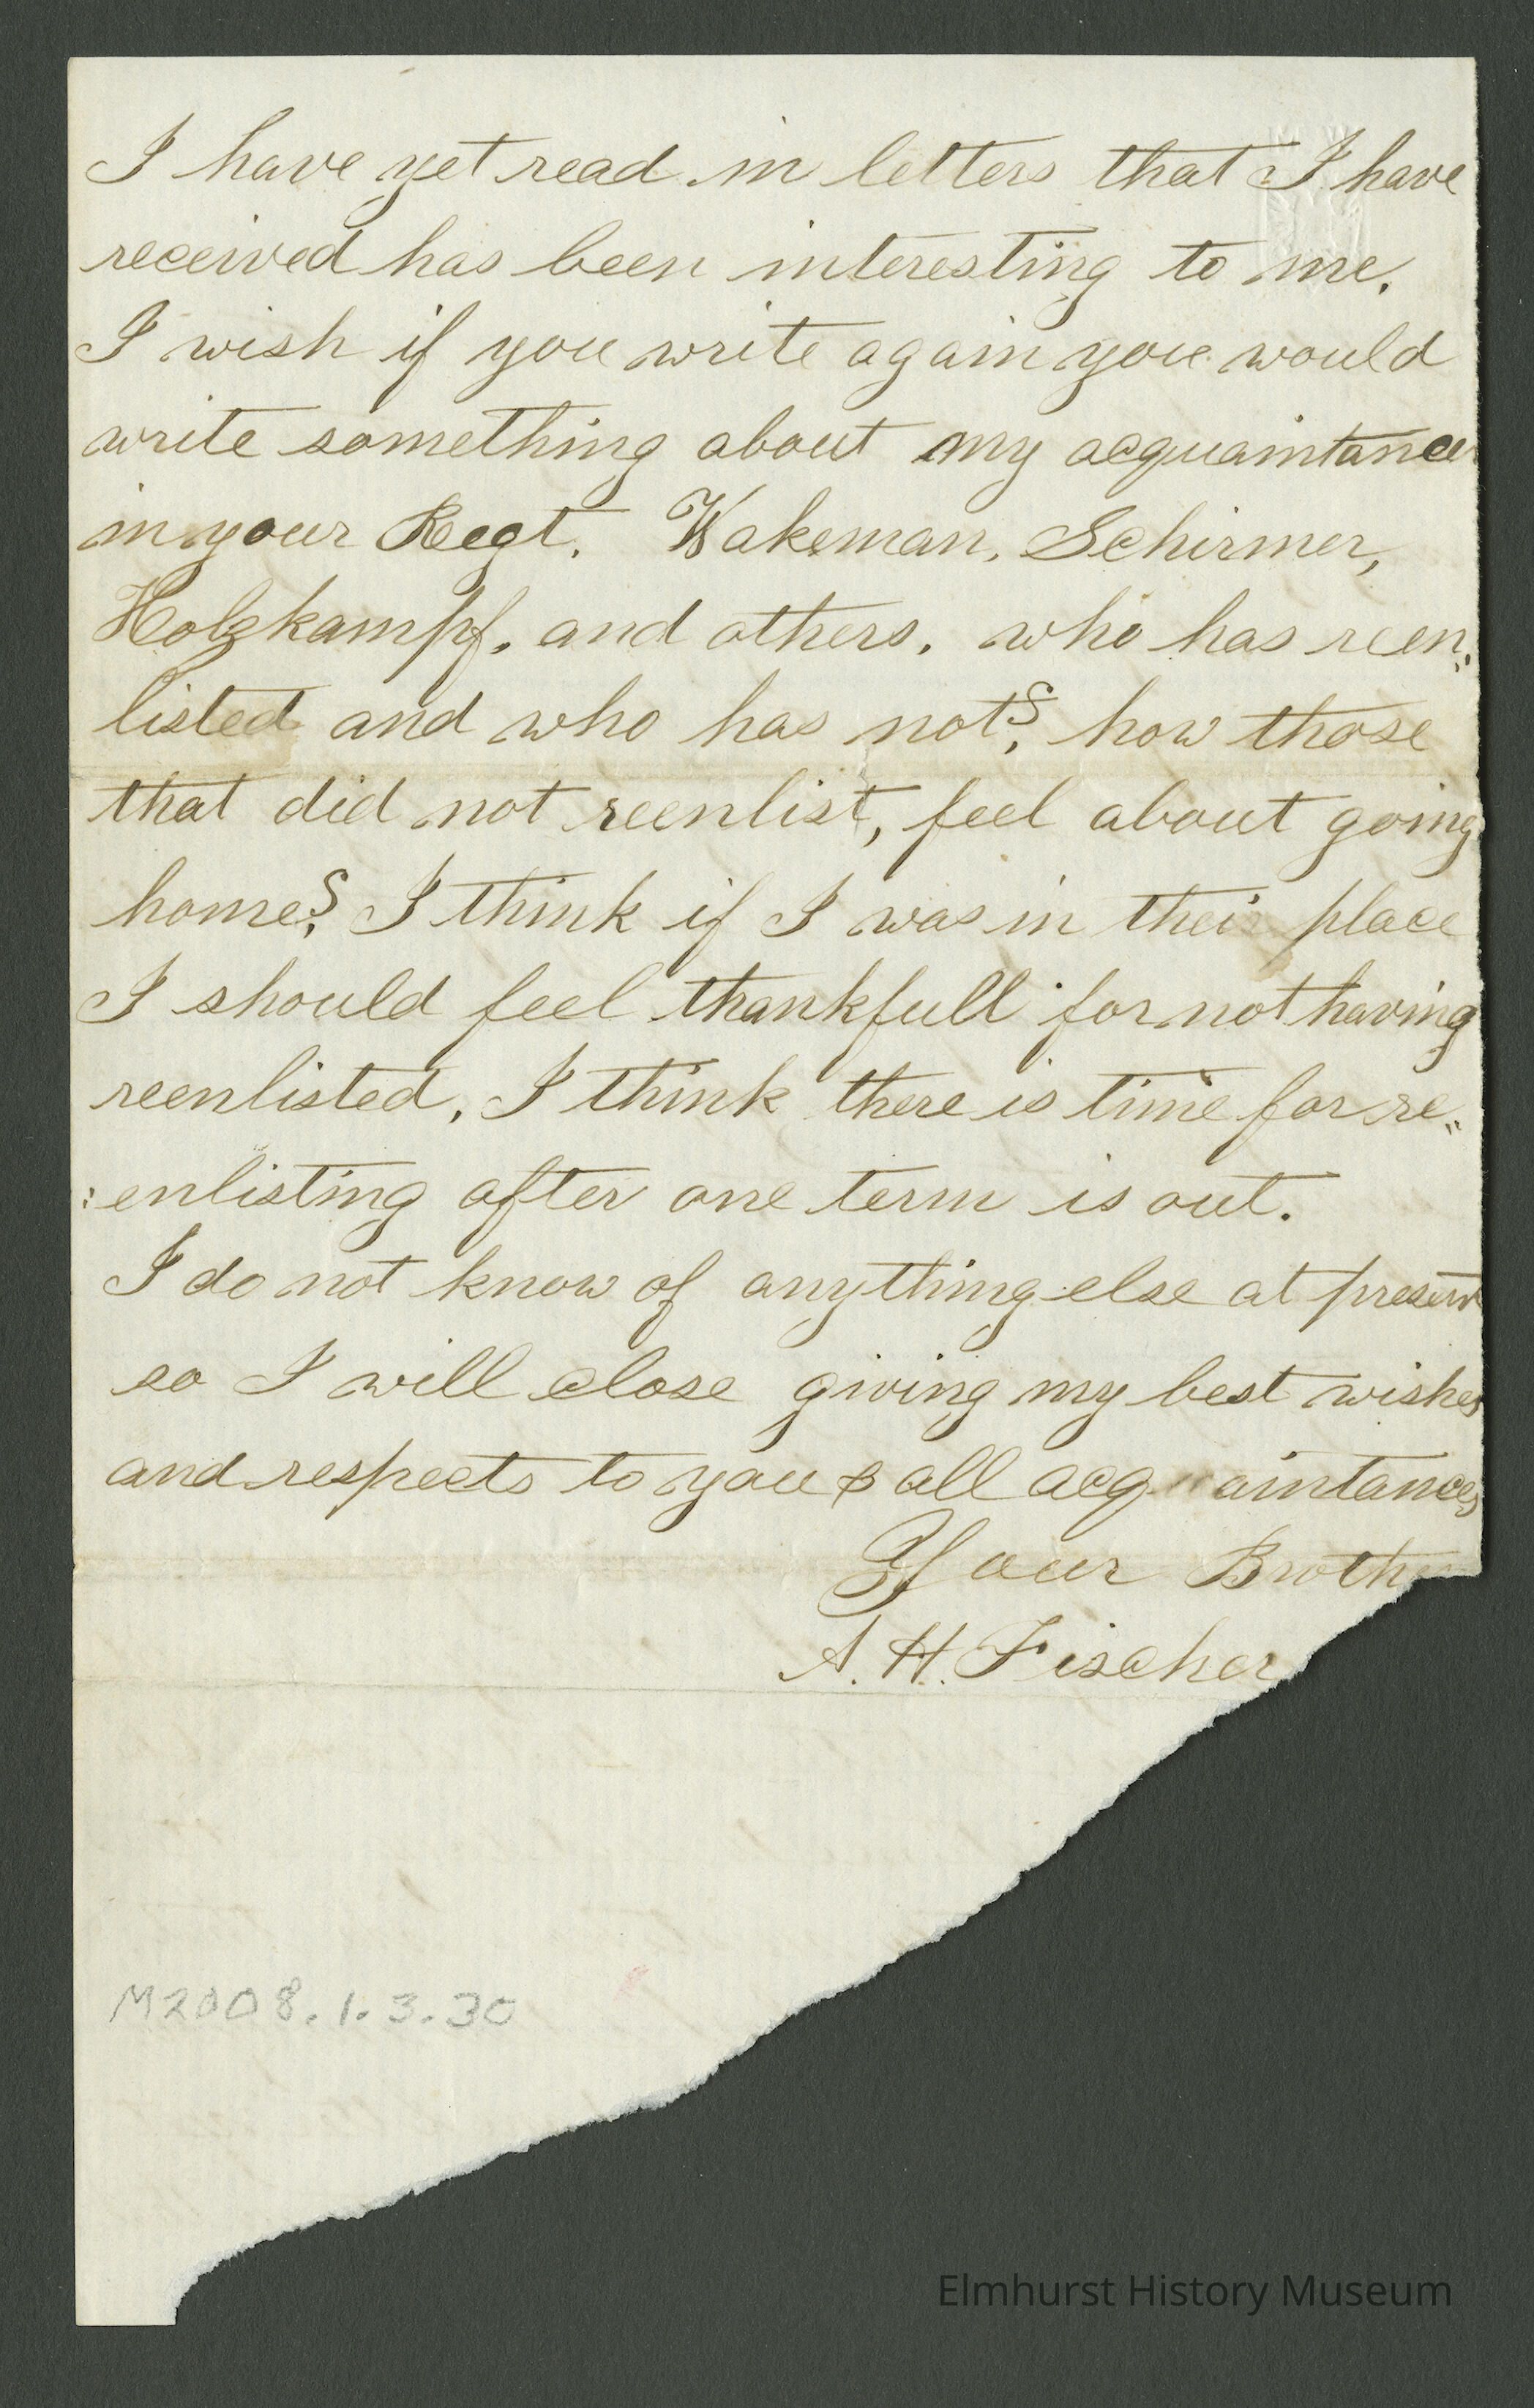 I have yet read in letters that I have
received has been interesting to me.
I wish if you write again you would
write something about my acquaintances
in your Regt. Wakeman, Schirmer,
Holzkampf, and others. who has reen-
listed and who has not?, how those
that did not reenlist, feel about going
home? I think if I was in their place
I should feel thankfull for not having
reenlisted, I think there is time for re-
:enlisting after one term is out.
I do not know of anything else at present
so I will close giving my best wishes
and respects to you & all acquaintances
Your Brother
A. H. Fischer
M2008.1.3.30
Elmhurst History Museum